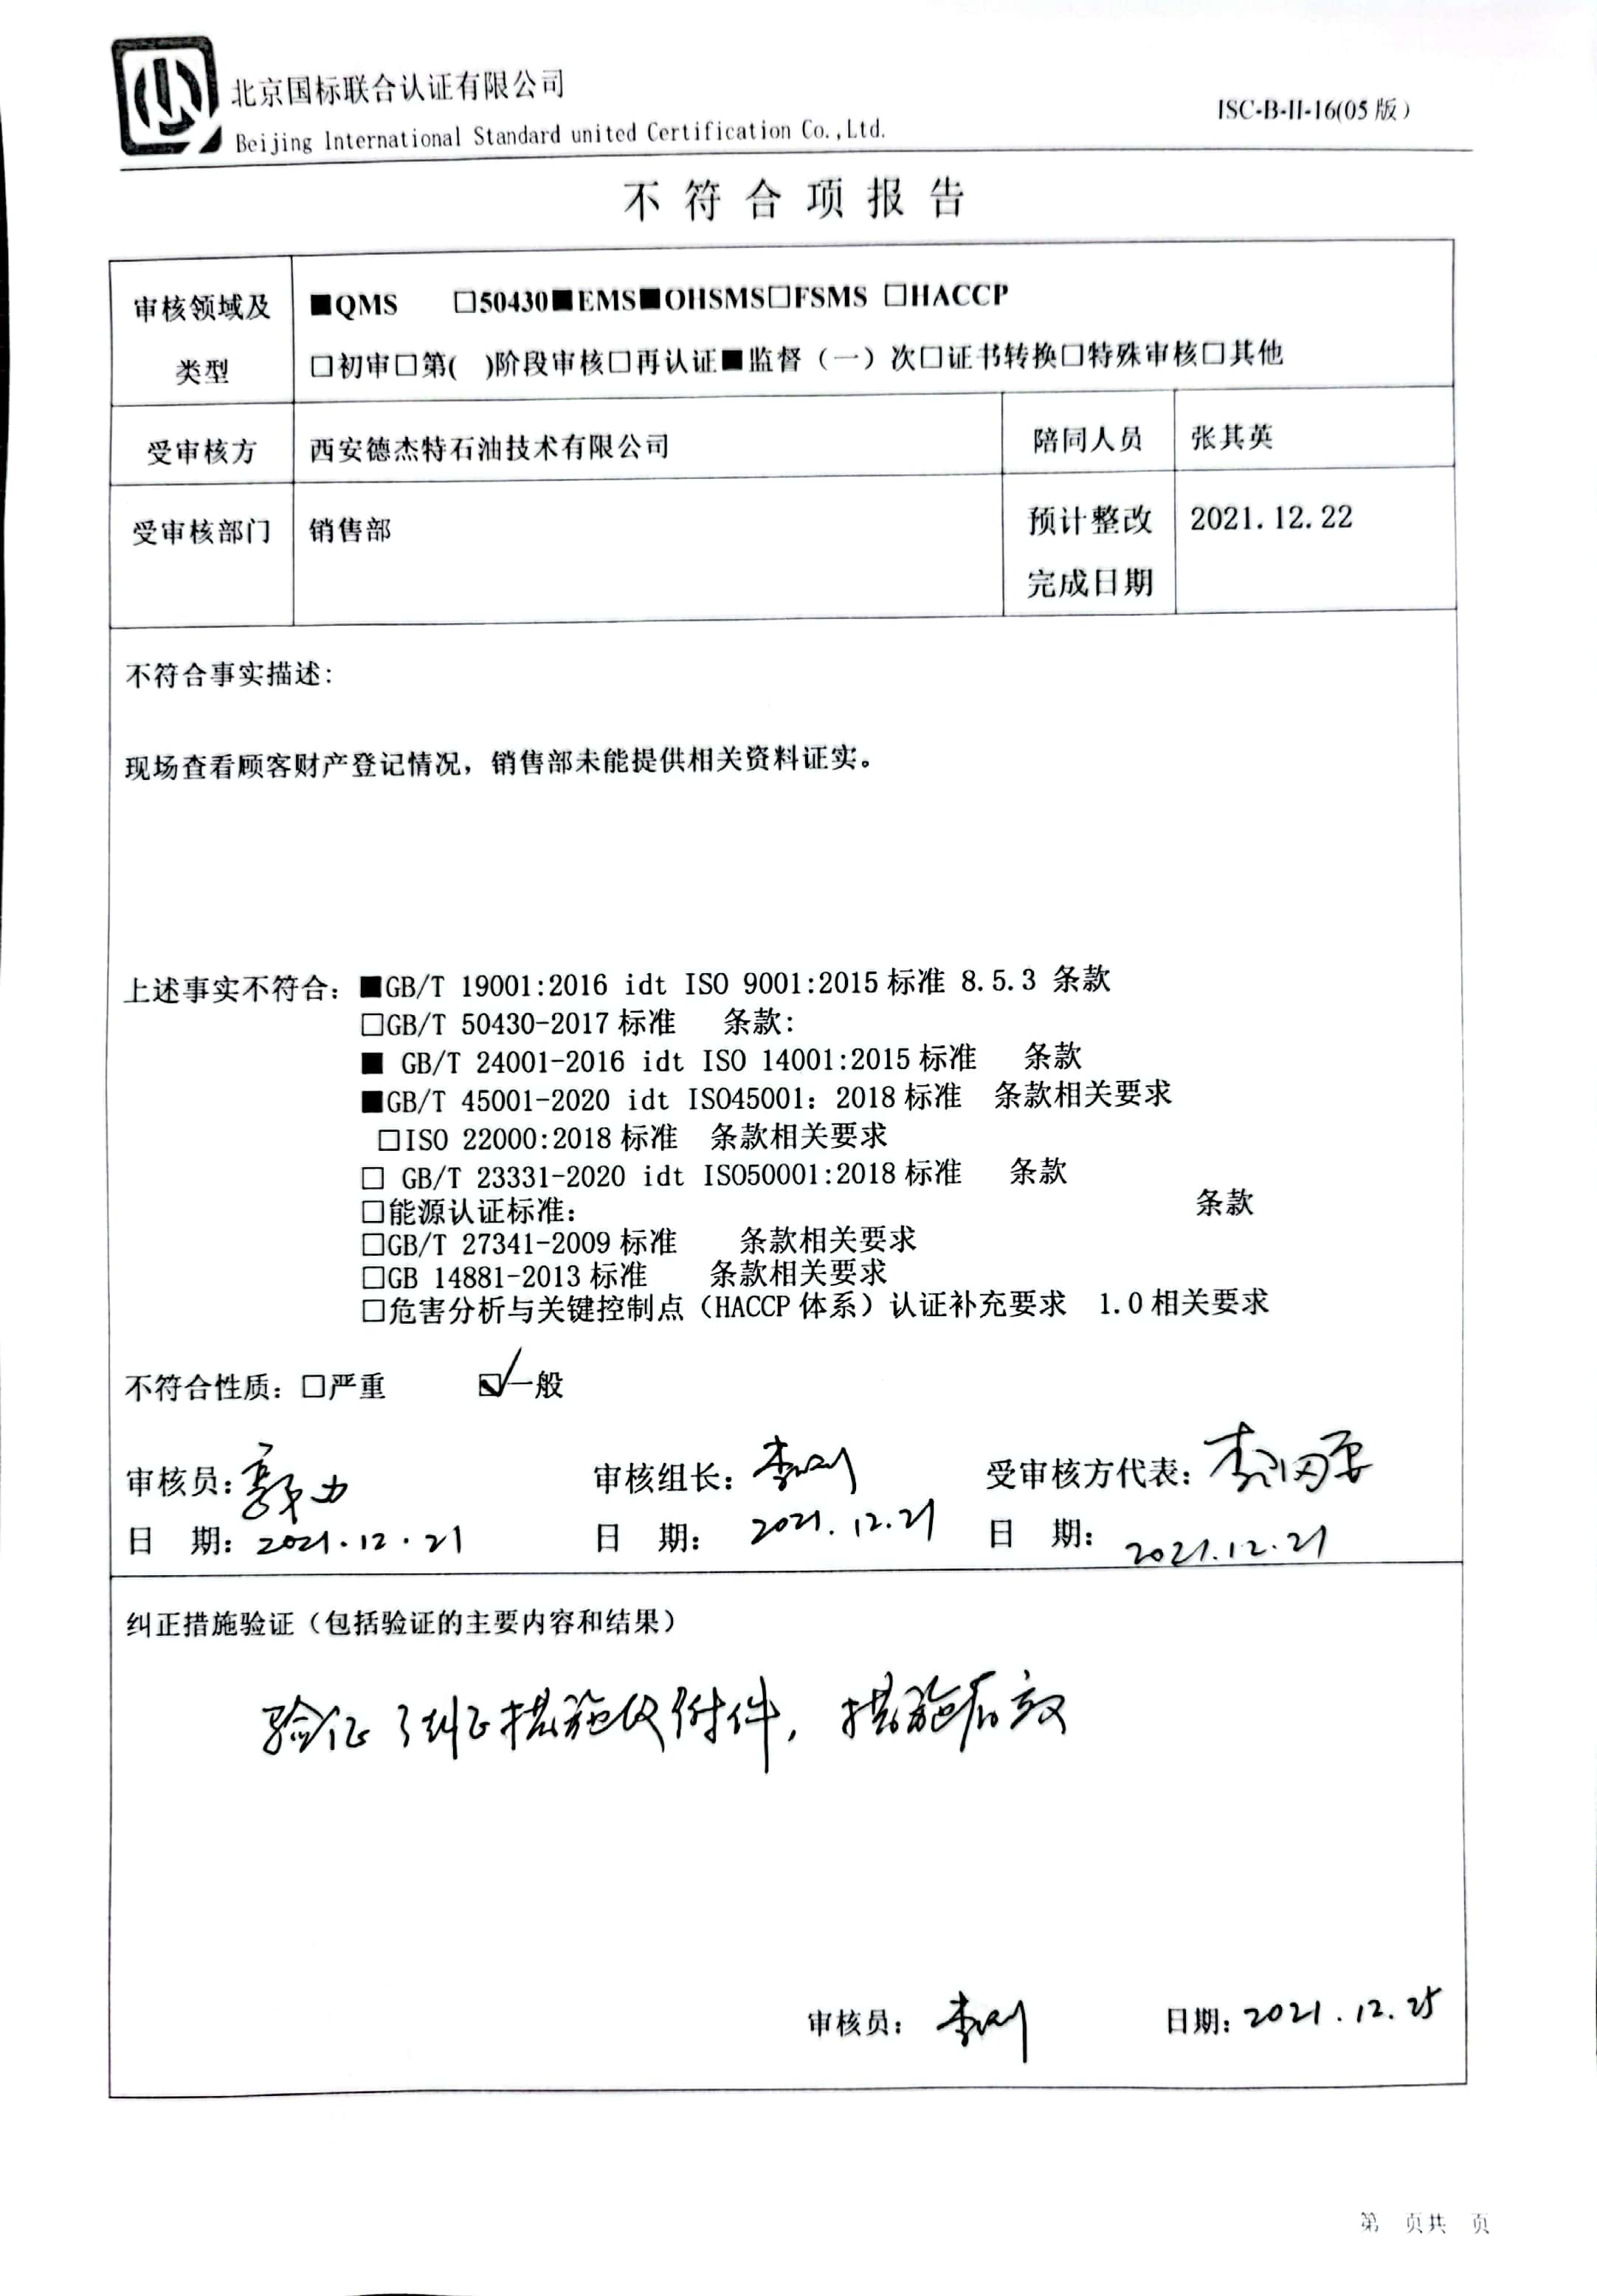 北京国标联合认证有限公司
Beijing International Standard united Certification Co.,Ltd.
ISC-B-II-16(05版)
不符合项报告
审核领域及类型
■QMS □50430■EMS■OHSMS□FSMS □HACCP
□初审□第( )阶段审核□再认证■监督（一）次□证书转换□特殊审核□其他
受审核方 西安德杰特石油技术有限公司 陪同人员 张其英
受审核部门 销售部 预计整改完成日期 2021.12.22
不符合事实描述：
现场查看顾客财产登记情况，销售部未能提供相关资料证实。
上述事实不符合：■GB/T 19001:2016 idt ISO 9001:2015标准 8.5.3 条款
□GB/T 50430-2017标准 条款：
■ GB/T 24001-2016 idt ISO 14001:2015标准 条款
■GB/T 45001-2020 idt ISO45001：2018标准 条款相关要求
□ISO 22000:2018标准 条款相关要求
□ GB/T 23331-2020 idt ISO50001:2018标准 条款
□能源认证标准： 条款
□GB/T 27341-2009标准 条款相关要求
□GB 14881-2013标准 条款相关要求
□危害分析与关键控制点（HACCP体系）认证补充要求 1.0相关要求
不符合性质：□严重 ☑一般
审核员：郭力 审核组长： 受审核方代表：
日 期：2021.12.21 日 期：2021.12.21 日 期：2021.12.21
纠正措施验证（包括验证的主要内容和结果）
验证了纠正措施及附件，措施有效
审核员： 日期：2021.12.25
第 页共 页